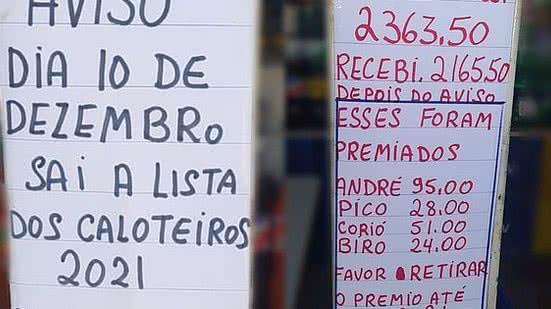 AVISO
DIA 10 DE
DEZEMBRO
SAI A LISTA
DOS CALOTEIROS
2021
2363.50
RECEBI. 2165.50
DEPOIS DO AVISO
ESSES FORAM
PREMIADOS
ANDRÉ 95.00
PICO 28.00
CORIÓ 51.00
BIRO 24.00
FAVOR RETIRAR
O PREMIO ATÉ